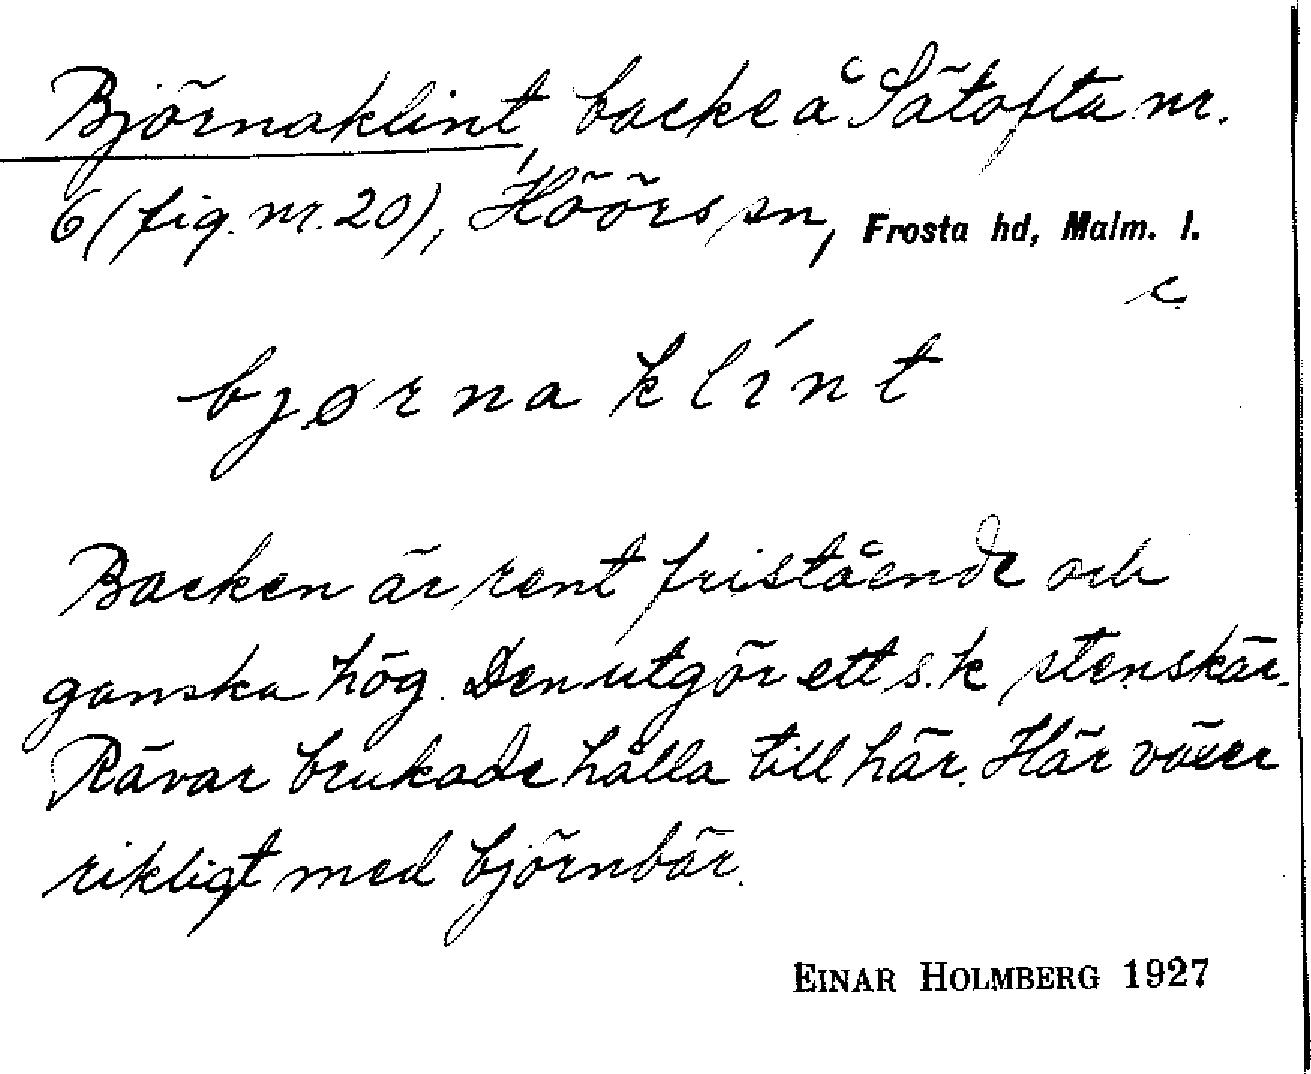 Björnaklint, backe å Sätofta nr.
6 (fig. nr. 20), Höörs sn, Frosta hd, Malm. l.
bjørnaklínt
Backen är rent fristående och
ganska hög. Den utgör ett s.k stenskär.
Rävar brukade hålla till här. Här växer
rikligt med björnbär.
EINAR HOLMBERG 1927